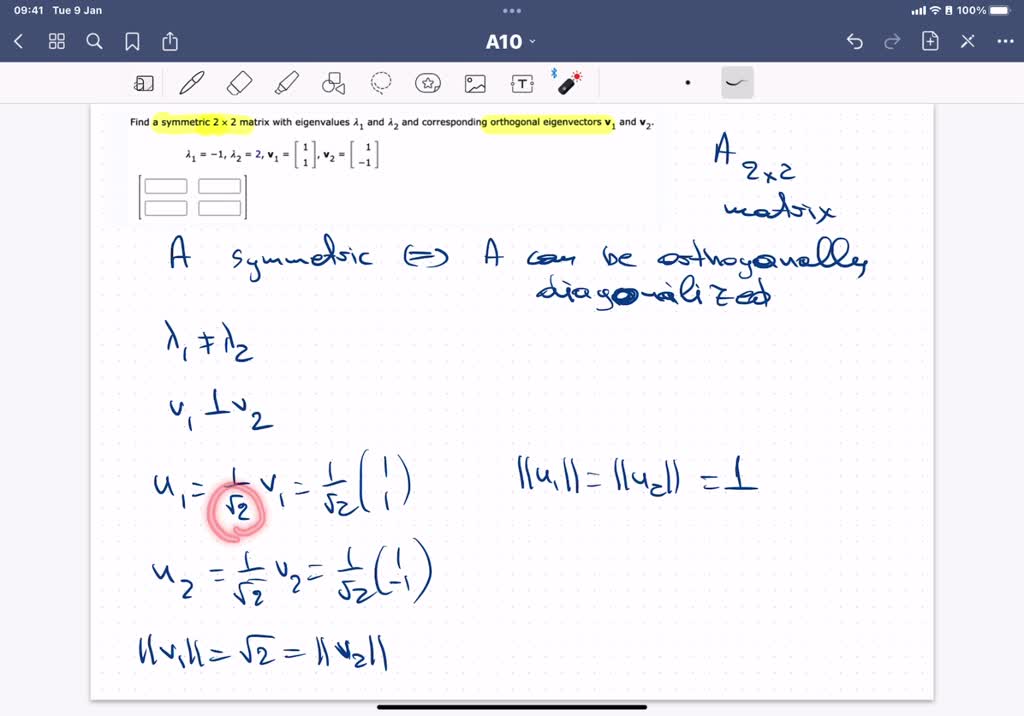 09:41 Tue 9 Jan
100%
A10
Find a symmetric 2 × 2 matrix with eigenvalues λ₁ and λ₂ and corresponding orthogonal eigenvectors v₁ and v₂.
λ₁ = −1, λ₂ = 2, v₁ = [1 1], v₂ = [1 −1]
A 2×2
matrix
A symmetric ⟺ A can be orthogonally
diagonalized
λ₁ ≠ λ₂
v₁ ⊥ v₂
u₁ = 1/√2 v₁ = 1/√2 (1 1) ||u₁|| = ||u₂|| = 1
u₂ = 1/√2 v₂ = 1/√2 (1 −1)
||v₁|| = √2 = ||v₂||